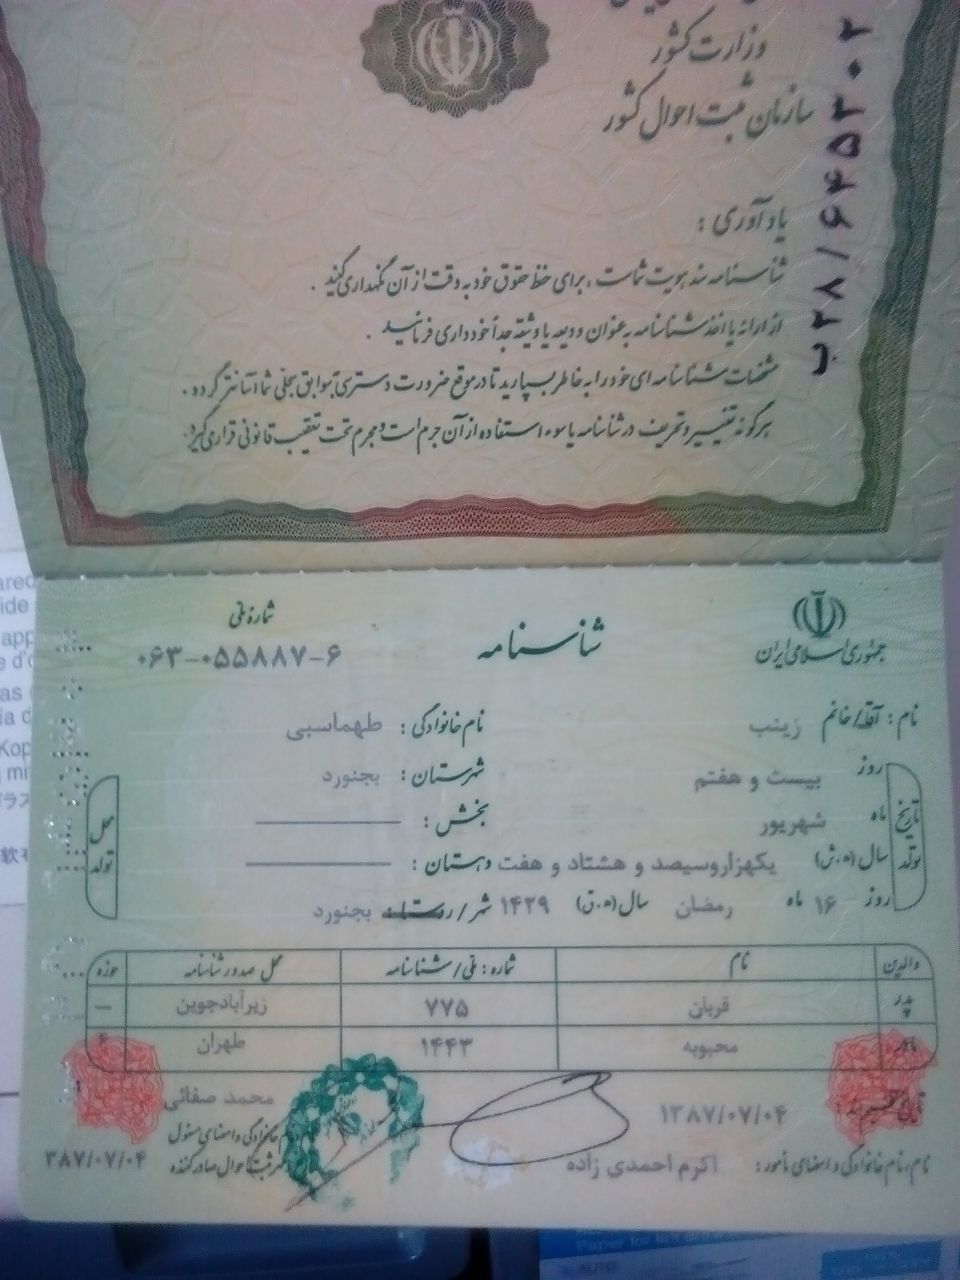 وزارت کشور
سازمان ثبت احوال کشور
ب۲۸/۶۴۵۳۰۲
یادآوری :
شناسنامه سند هویت شماست ، برای حفظ حقوق خود به دقت از آن نگهداری کنید .
از ارائه یا اخذ شناسنامه به عنوان ودیعه یا وثیقه جداً خودداری فرمائید .
مشخصات شناسنامه ای خود را به خاطر بسپارید تا در موقع ضرورت دسترسی به سوابق سجلی شما آسانتر گردد .
هرگونه تغییر و تحریف در شناسنامه یا سوء استفاده از آن جرم است و مجرم تحت تعقیب قانونی قرار می گیرد.
جمهوری اسلامی ایران
شناسنامه
شماره ملی
۰۶۳-۰۵۵۸۸۷-۶
نام : آقا/خانم زینب نام خانوادگی : طهماسبی
تاریخ تولد
محل تولد
روز بیست و هفتم شهرستان : بجنورد
ماه شهریور بخش :
سال (ه.ش) یکهزاروسیصد و هشتاد و هفت دهستان :
روز ۱۶ ماه رمضان سال (ه.ق) ۱۴۲۹ شهر/روستا : بجنورد
والدین نام شماره : ملی/شناسنامه محل صدور شناسنامه حوزه
پدر قربان ۷۷۵ زیرآبادجوین —
مادر محبوبه ۱۴۴۳ طهران ۴
۱۳۸۷/۰۷/۰۴ محمد صفائی
نام، نام خانوادگی و امضای مأمور : اکرم احمدی زاده
۳۸۷/۰۷/۰۴